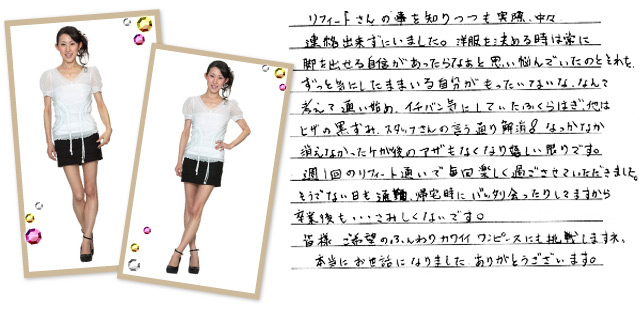 リフィートさんの事を知りつつも実際、中々
連絡出来ずにいました。洋服を決める時は常に
脚を出せる自信があったらなぁと思い悩んでいたのとそれも、
ずっと気にしたままいる自分がもったいてないな、なんて
考えて通い始め、イチバン気にしていたふくらはぎ、他は
ヒザの黒ずみ、スタッフさんの言う通り解消!なっかなか
消えなかったケガ後のアザもなくなり嬉しい限りです。
週1回のリフィート通いで毎回楽しく過ごさせていただきました。
そうでない日も通勤、帰宅時にバッタリ会ったりしてますから
卒業後も・・・さみしくないです。
皆様ご希望のふんわりカワイイワンピースにも挑戦しますネ。
本当にお世話になりました ありがとうございます。